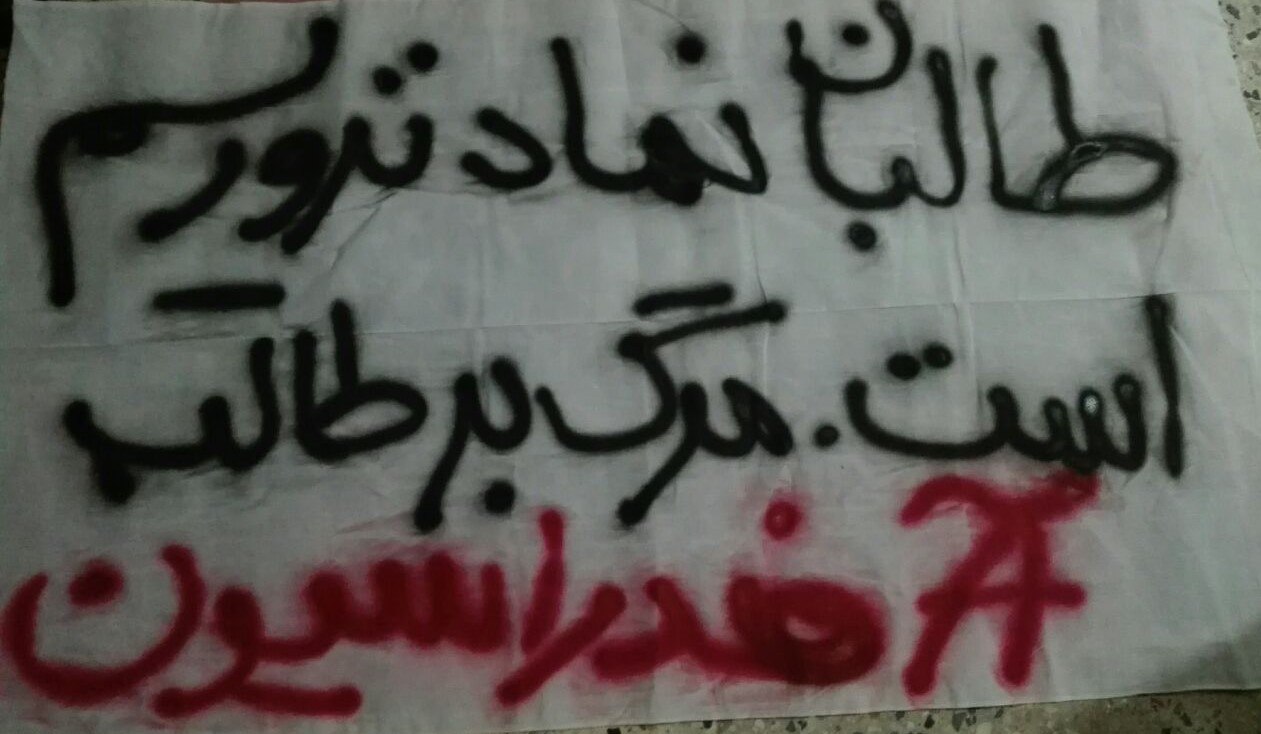 طالبان نماد تروریسم
است. مرگ بر طالب
A فدراسیون